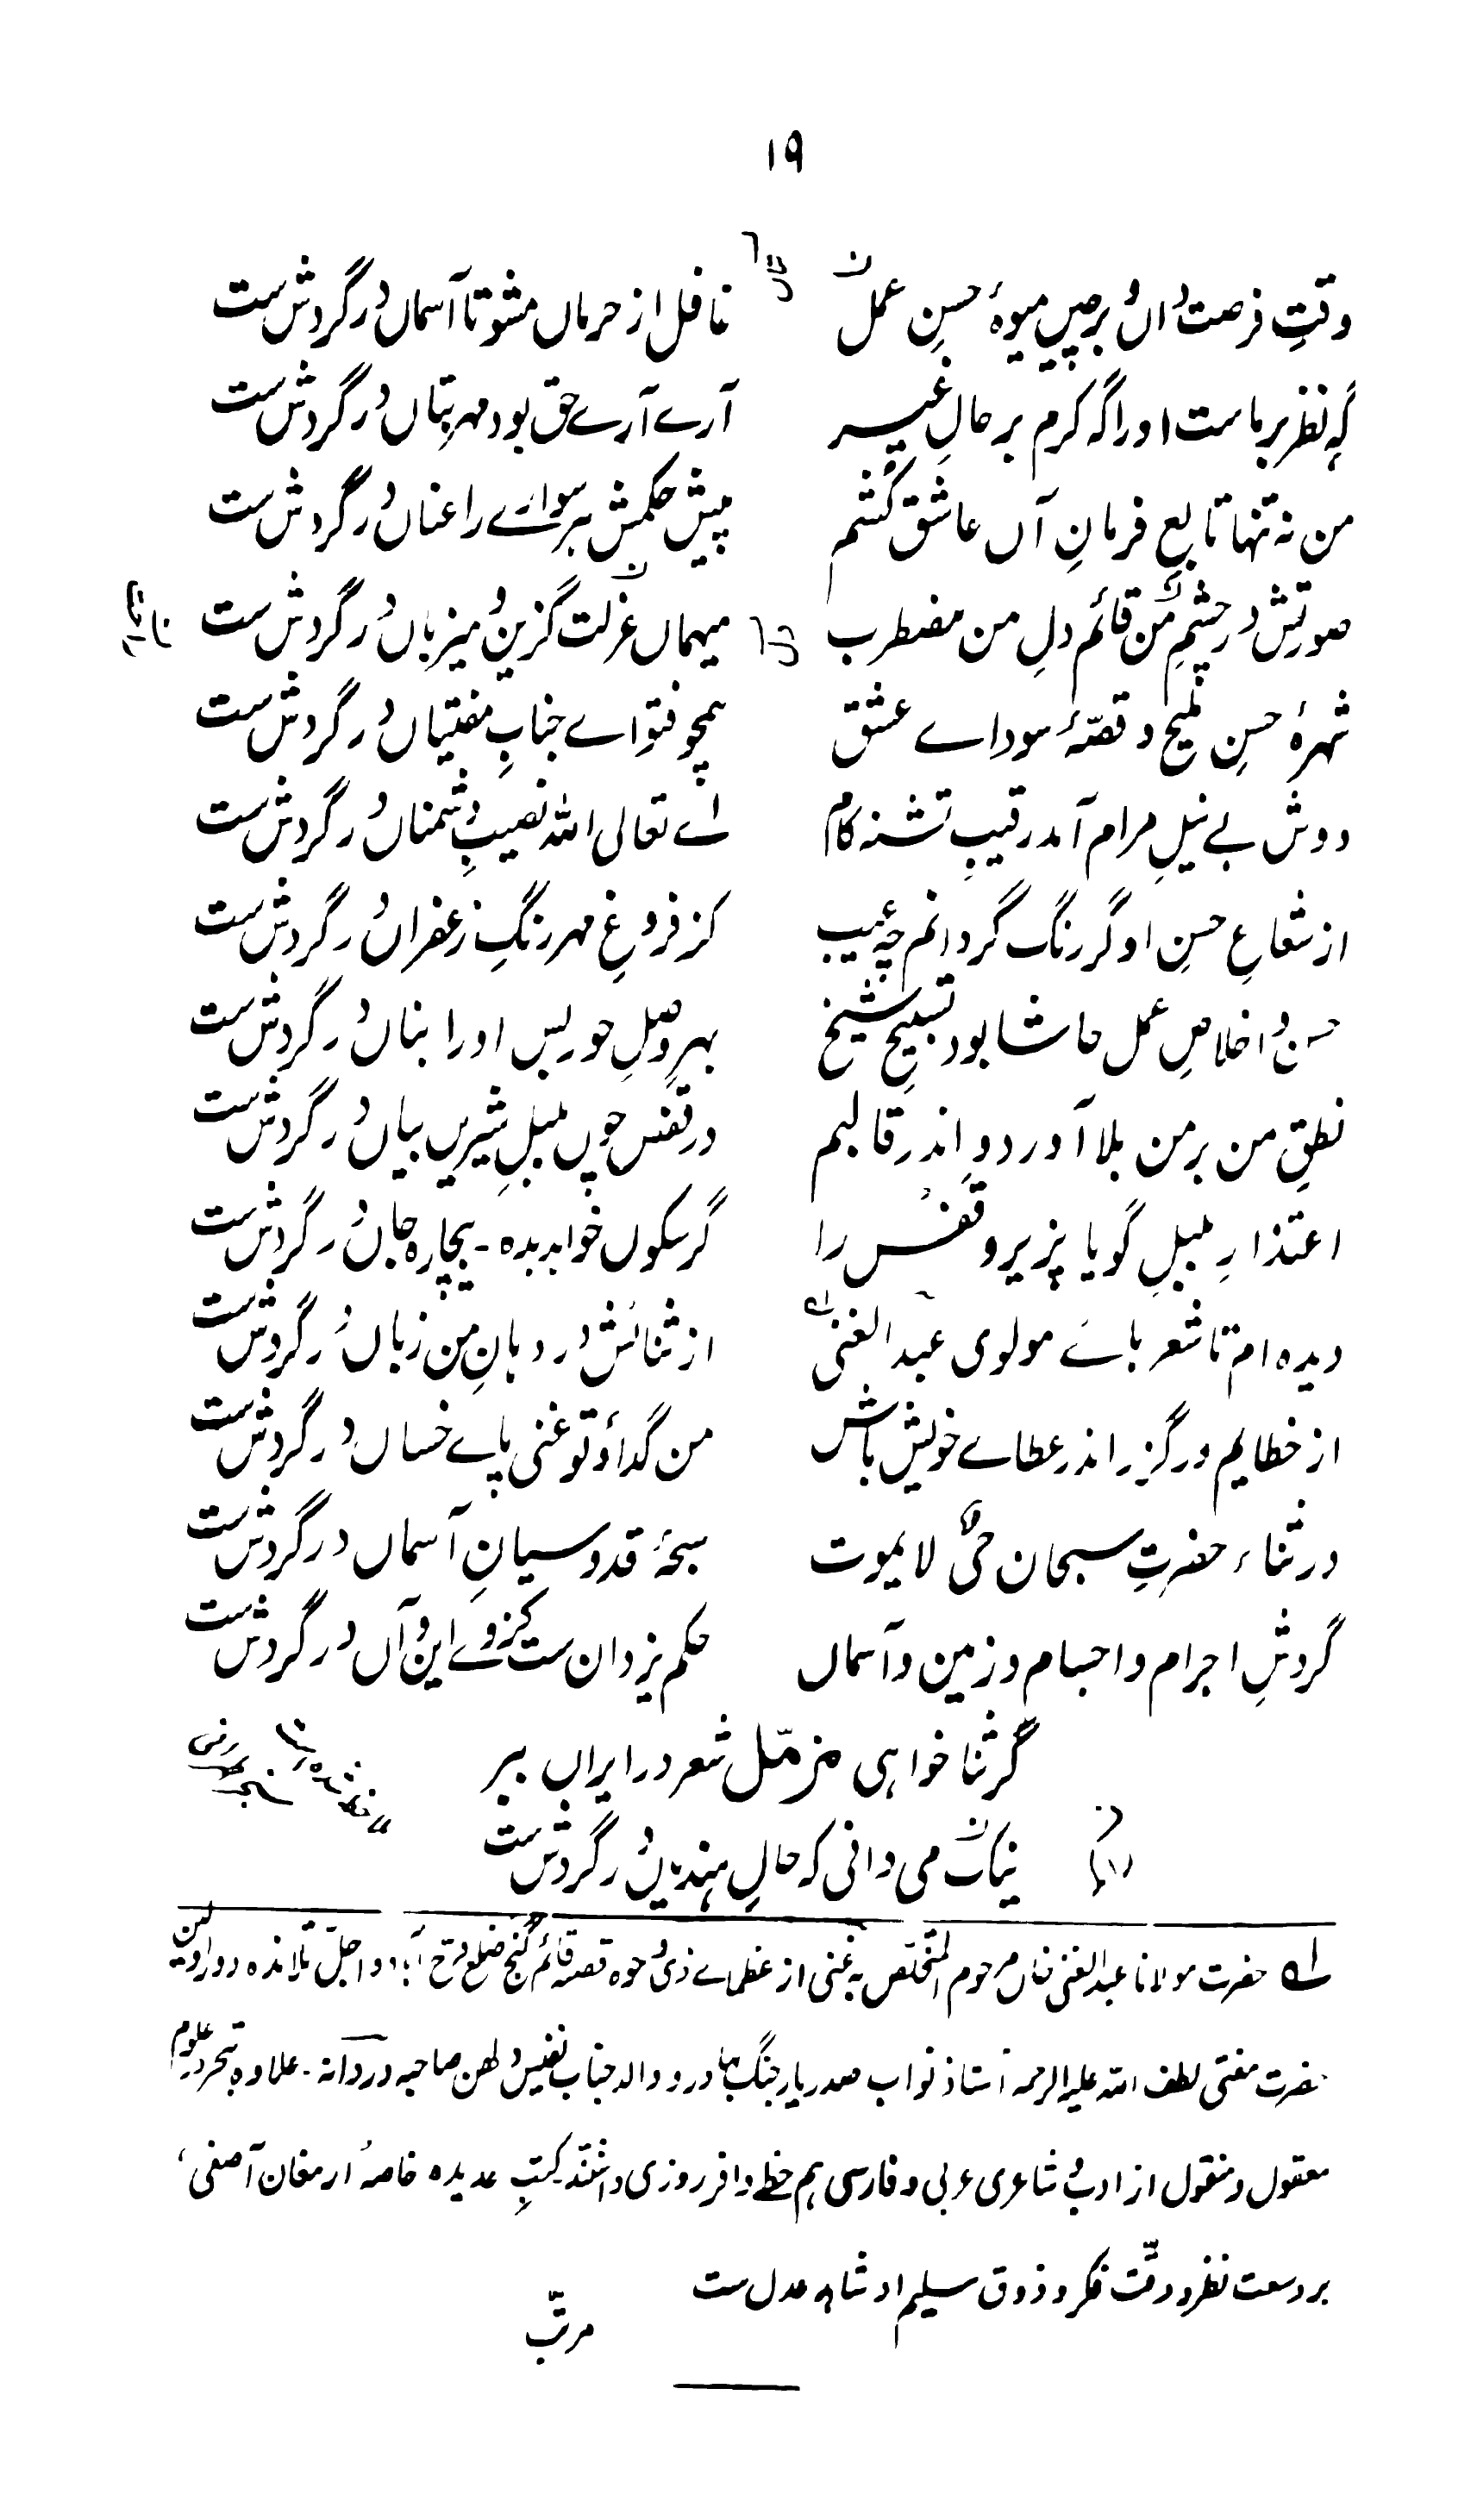 ۱۹
وقتِ فرصت داں و برچیں میوۂ حسنِ عمل غافل از حرماں مشو تا آسماں در گردش ست
گہ نظر بر ماست او را گہ کرم بر حالِ غیر آرے آرے حق بود مہرِ بتاں در گردش ست
من نہ تنہا تابعِ فرمانِ آں عاشق کُشم پیش حکمش ہر سوارے را عناں در گردش ست
صورتش در چشمِ من قائم دلِ من مضطرب میہماں عزلت گزین و میزباں در گردش ست
شہرۂ حسنِ ملیح و قصّۂ سوداے عشق ہمچو فتواے جنابِ مفتیاں در گردش ست
دوش بے نیلِ مرام آمد رقیبِ تشنہ کام اے تعالی اللہ نصیبِ دشمناں در گردش ست
از شعاعِ حسنِ او گر رنگ گردانم چہ عیب کز فروغِ مہر رنگِ زعفراں در گردش ست
حسن و اخلاصِ عمل حاشا بود تسبیحِ شیخ بہرِ وصلِ حور بس او را بناں در گردش ست
نطقِ من بر من بلا آورد و اندر قالبم در قفس چوں بلبلِ شیریں بیاں در گردش ست
اعتذارِ بلبلِ گویا پزیر و قفس را گر سکوں خواہد بدہ ۔ بیچارہ جاں در گردش ست
دیدہ ام تا شعر ہاے مولوی عبد الغنی لہ از ثنائش در دہانِ من زباں در گردش ست
از خطایم درگزر اندر عطاے خویش باش من گدا و تو غنی پاے خساں در گردش ست
در ثناء حضرتِ سبحان حیٌّ لا یموت سبحۂ قدوسیانِ آسماں در گردش ست
گردشِ اجرام و اجسام و زمین و آسماں حکم یزدان ست کز وے این و آں در گردش ست
گر ثنا خواہی مزمّل شعر در ایراں ببر
نیک می دانی کہ حالِ ہندیاں در گردش ست
لہ حضرت مولانا عبد الغنی خاں مرحوم المتخلص بہ غنی از عظماے ذی وجوہ قصبہ قائم گنج ضلع فرخ آباد و اجلّ تلامذہ دور اولین
حضرت مفتی لطف اللہ علیہ الرحمہ استاذ نواب صدر یار جنگ بہادر و والد جناب نفیس دلھن صاحبہ دردانہ ۔ علاوہ تبحر در علوم
معقول و منقول از ادب و شاعری عربی و فارسی ہم حظے وافر روزی داشتند کتبِ عدیدہ خاصہ ارمغان آصفی،
بر وسعت نظر و دقّت فکر و ذوق سلیم او شاہد عدل ست
مرتّب